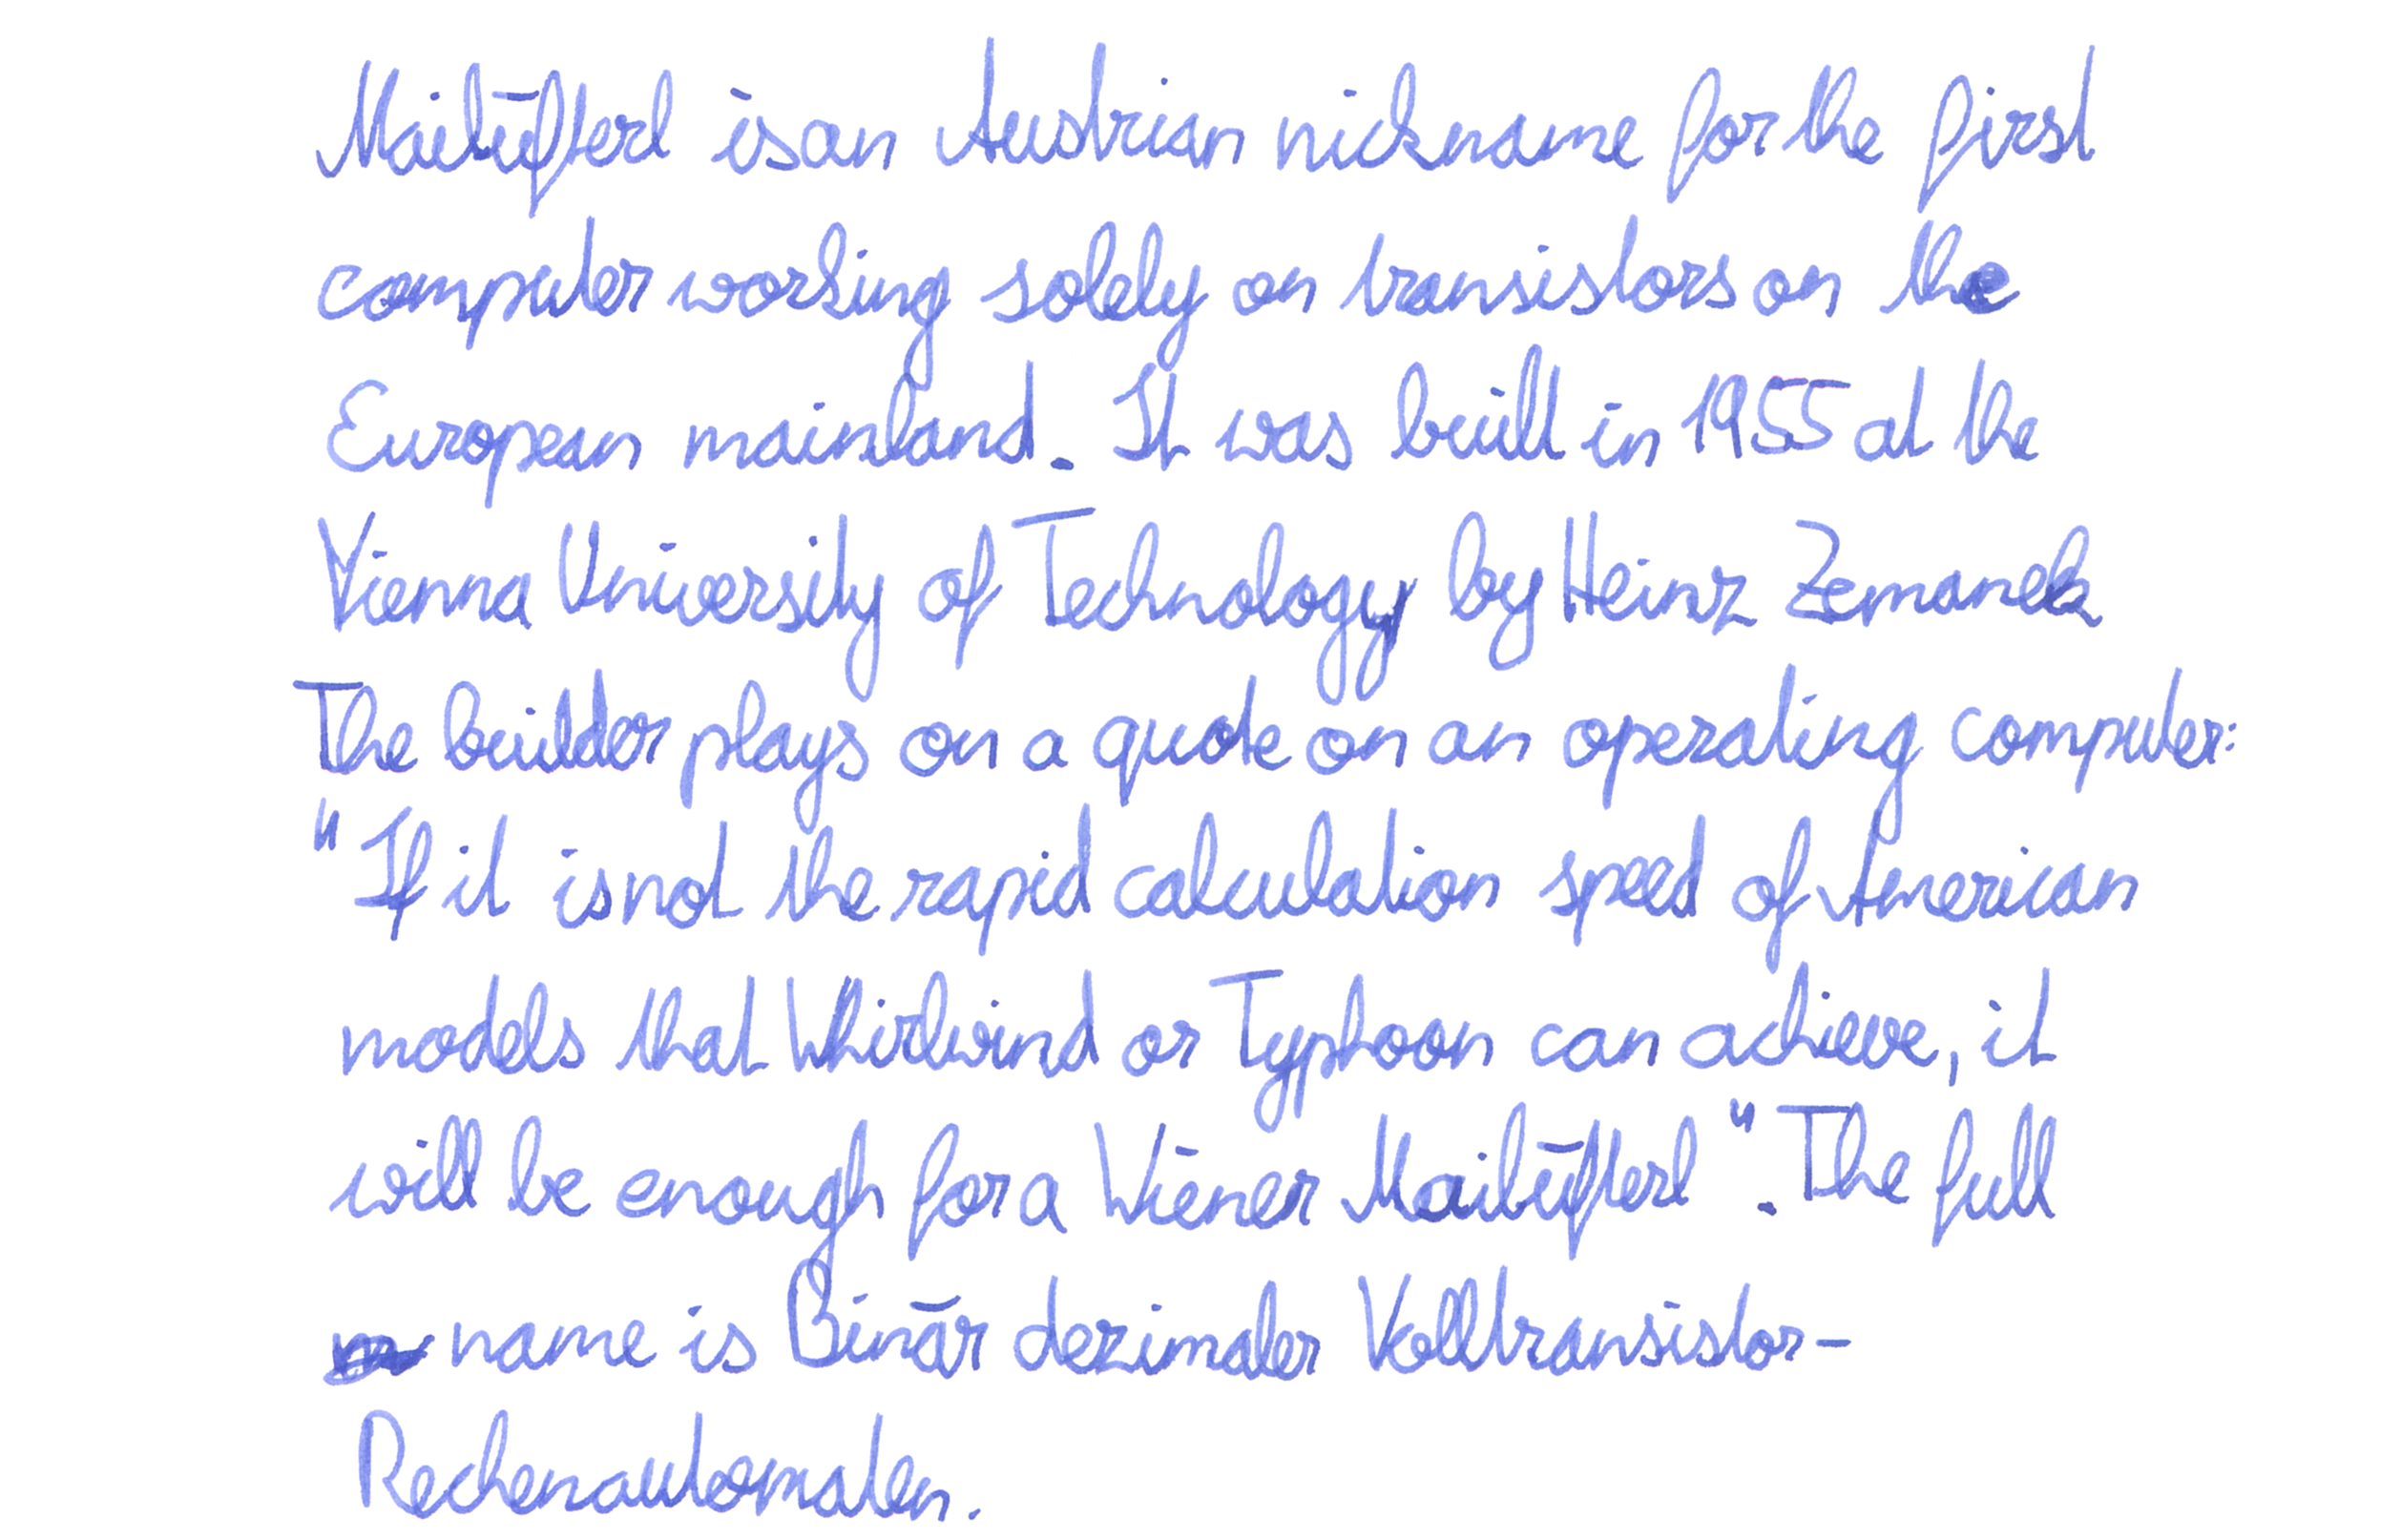 Mailüfterl is an Austrian nickname for the first
computer working solely on transistors on the
European mainland. It was built in 1955 at the
Vienna University of Technology by Heinz Zemanek
The builder plays on a quote on an operating computer:
"If it is not the rapid calculation speed of American
models that Whirlwind or Typhoon can achieve, it
will be enough for a Wiener Mailüfterl". The full
name is Binär dezimaler Volltransistor-
Rechenautomaten.